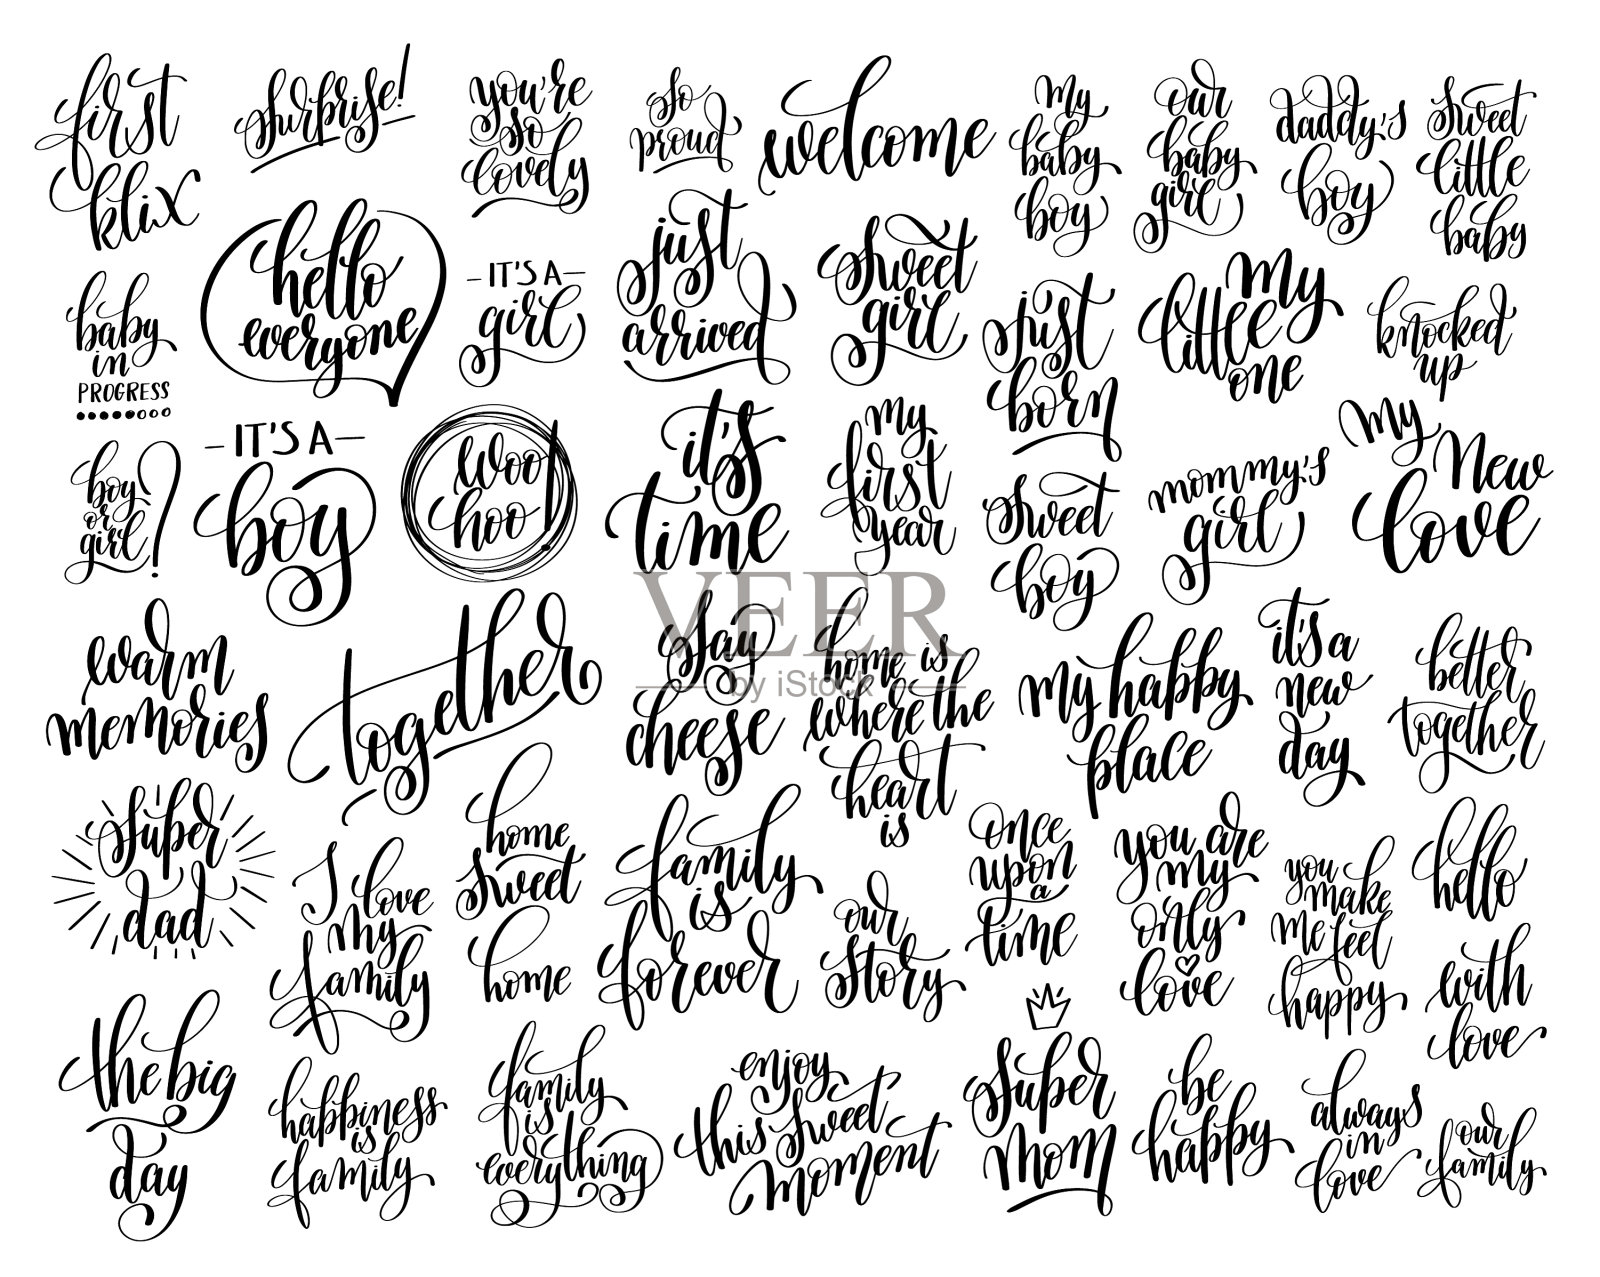 first
klix
surprise!
you're
so
lovely
so
proud
welcome
my
baby
boy
our
baby
girl
daddy's
boy
sweet
little
baby
hello
everyone
baby
in
PROGRESS
- IT'S A -
girl
just
arrived
sweet
girl
just
born
my
little
one
knocked
up
boy
or
girl?
- IT'S A -
boy
woo
hoo!
it's
time
my
first
year
sweet
boy
mommy's
girl
my
new
love
warm
memories
together
say
cheese
home is
where the
heart
is
my happy
place
it's a
new
day
better
together
VEER
by iStock
super
dad
I love
my
family
home
sweet
home
family
is
forever
our
story
once
upon
a
time
you are
my
only
love
you
make
me feel
happy
hello
with
love
the big
day
happiness
is
family
family
is
everything
enjoy
this sweet
moment
super
mom
be
happy
always
in
love
our
family